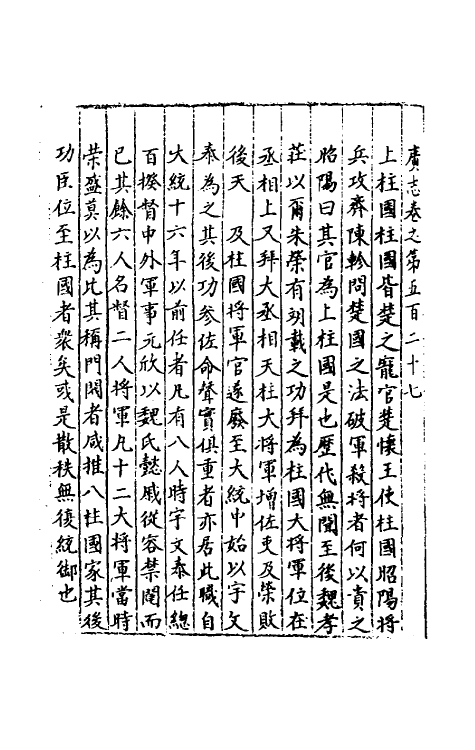 廣志卷之第五百二十七
上柱國柱國皆楚之寵官楚懷王使柱國昭陽將
兵攻齊陳軫問楚國之法破軍殺將者何以貴之
昭陽曰其官為上柱國是也歷代無聞至後魏孝
莊以爾朱榮有翊戴之功拜為柱國大將軍位在
丞相上又拜大丞相天柱大將軍增佐吏及榮敗
後天 及柱國將軍官遂廢至大統中始以宇文
泰為之其後功參佐命聲實俱重者亦居此職自
大統十六年以前任者凡有八人時宇文泰任總
百揆督中外軍事元欣以魏氏懿戚從容禁闥而
已其餘六人各督二人將軍凡十二大將軍當時
榮盛莫以為比其稱門閥者咸推八柱國家其後
功臣位至柱國者衆矣或是散秩無復統御也